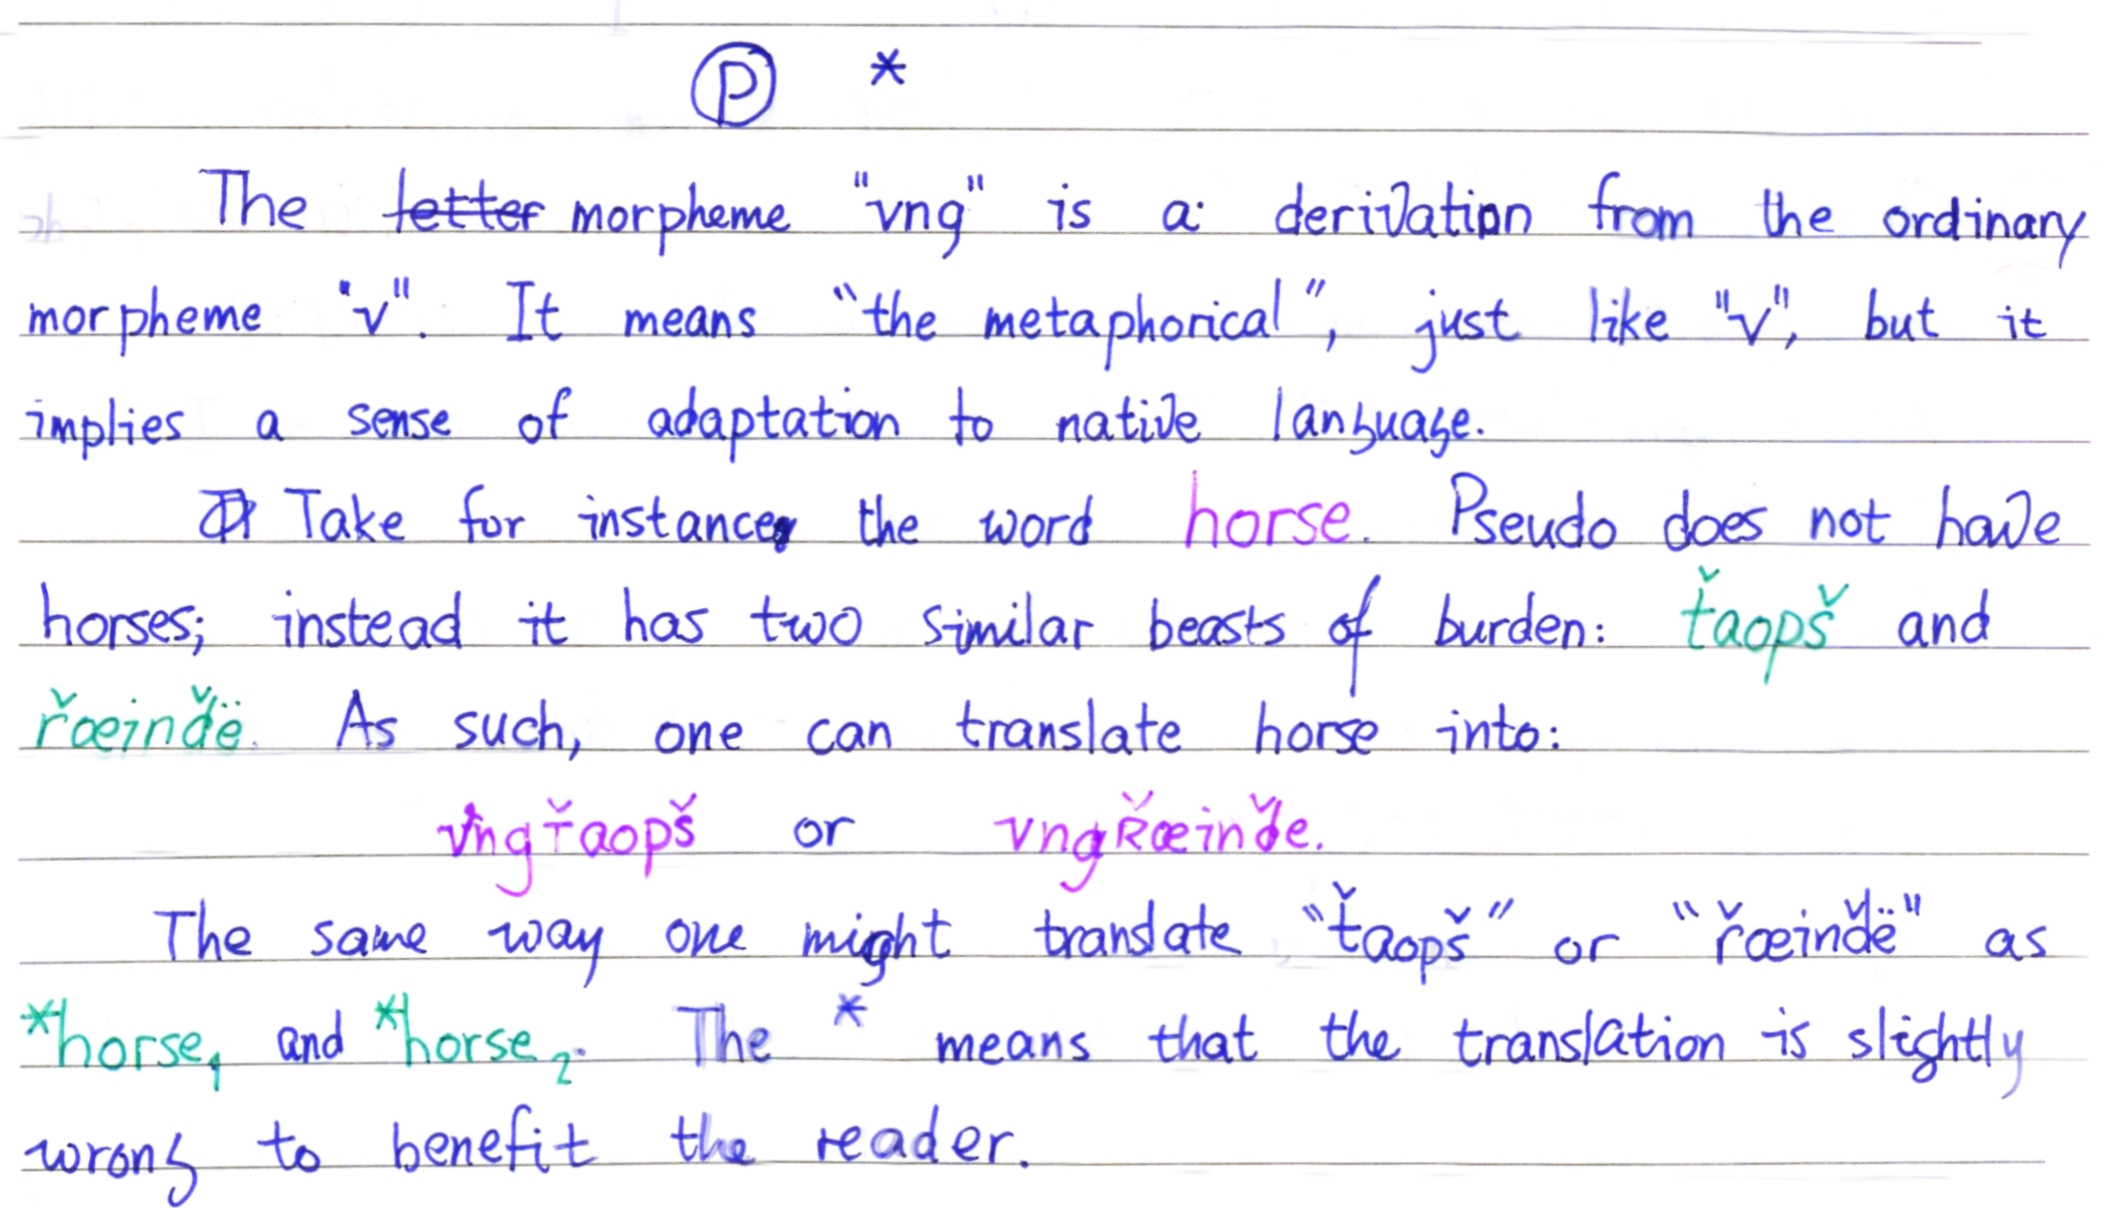 Ⓟ *
The ~~letter~~ morpheme "vng" is a derivation from the ordinary
morpheme "v". It means "the metaphorical", just like "v", but it
implies a sense of adaptation to native language.
Take for instance, the word horse. Pseudo does not have
horses; instead it has two similar beasts of burden: ťaopš and
řœinďë. As such, one can translate horse into:
vngŤaopš or vngŘœinďe.
The same way one might translate "ťaopš" or "řœinďë" as
*horse₁ and *horse₂. The * means that the translation is slightly
wrong to benefit the reader.